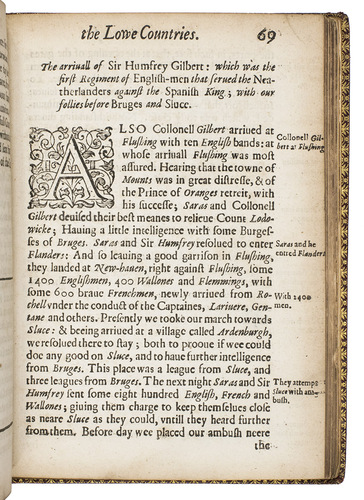 the Lowe Countries. 69
The arriuall of Sir Humfrey Gilbert: which was the
first Regiment of English-men that serued the Nea-
therlanders against the Spanish King; with our
follies before Bruges and Sluce.
ALSO Collonell Gilbert arriued at
Flushing with ten English bands: at
whose arriuall Flushing was most
assured. Hearing that the towne of
Mounts was in great distresse, & of
the Prince of Oranges retreit, with
his successe; Saras and Collonell
Gilbert deuised their best meanes to relieue Count Lodo-
wicke; Hauing a little intelligence with some Burges-
ses of Bruges. Saras and Sir Humfrey resolued to enter
Flanders: And so leauing a good garrison in Flushing,
they landed at New-hauen, right against Flushing, some
1400 Englishmen, 400 Wallones and Flemmings, with
some 600 braue Frenchmen, newly arriued from Ro-
chell vnder the conduct of the Captaines, Lariuere, Gen-
tane and others. Presently we tooke our march towards
Sluce: & being arriued at a village called Ardenburgh,
we resolued there to stay; both to prooue if wee could
doe any good on Sluce, and to haue further intelligence
from Bruges. This place was a league from Sluce, and
three leagues from Bruges. The next night Saras and Sir
Humfrey sent some eight hundred English, French and
Wallones; giuing them charge to keep themselues close
as neare Sluce as they could, vntill they heard further
from them. Before day wee placed our ambush neere
the
Collonell Gil-
bert at Flushing
Saras and he
entred Flanders
With 1400
men.
They attempt
Sluce with am-
bush.